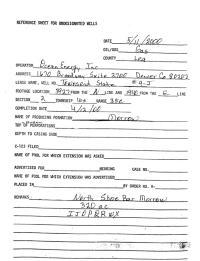 REFERENCE SHEET FOR UNDESIGNATED WELLS
DATE 5/11/2000
OIL/GAS Gas
COUNTY Lea
OPERATOR Ocean Energy, Inc
ADDRESS 1670 Broadway Suite 2700 Denver Co 80202
LEASE NAME, WELL NO. Townsend State #9-J
FOOTAGE LOCATION: FROM THE LINE AND FROM THE E LINE
SECTION 2 TOWNSHIP 16S RANGE 35E
COMPLETION DATE 4/2/00
NAME OF PRODUCING FORMATION Morrow
TOP OF PERFORATIONS
DEPTH TO CASING SHOE
C-123 FILED
NAME OF POOL FOR WHICH EXTENSION WAS ASKED
ADVERTISED FOR HEARING CASE NO.
NAME OF POOL FOR WHICH EXTENSION WAS ADVERTISED
PLACED IN BY ORDER NO. R-
REMARKS North Shoe Bar Morrow
320 ac
IJOPRWX